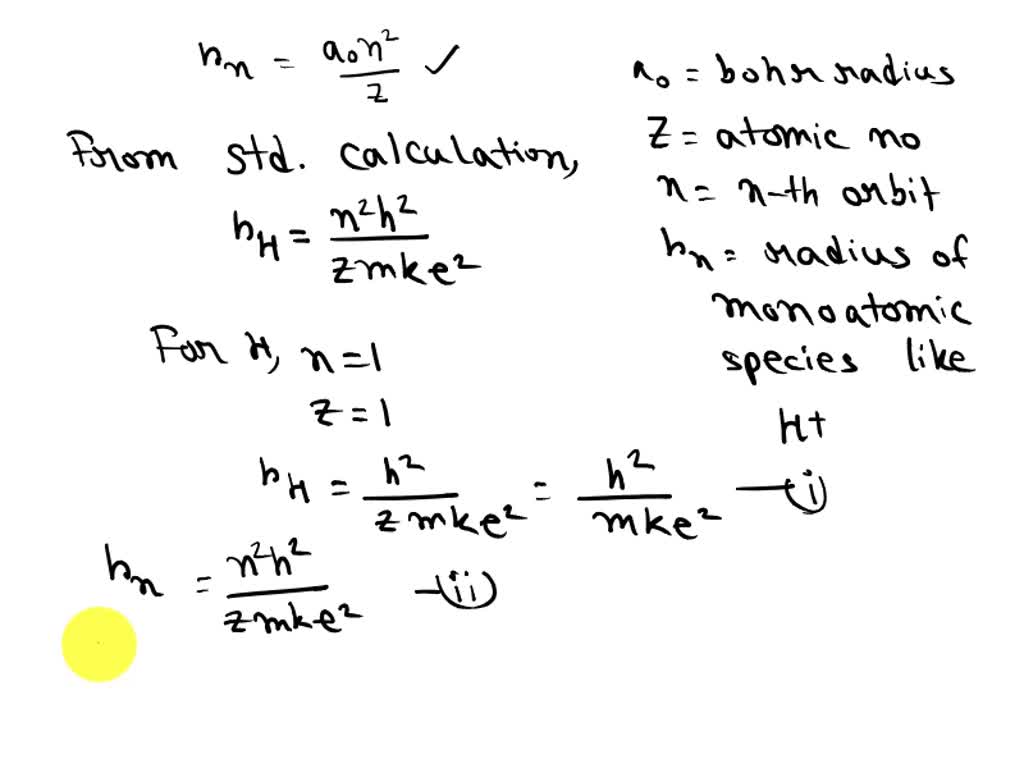 r_n = a₀n²/z ✓
From std. calculation,
r_H = n²h²/zmke²
For H, n=1
z=1
r_H = h²/zmke² = h²/mke² —(i)
r_n = n²h²/zmke² —(ii)
a₀ = bohr radius
Z = atomic no
n = n-th orbit
r_n = radius of
monoatomic
species like
H+